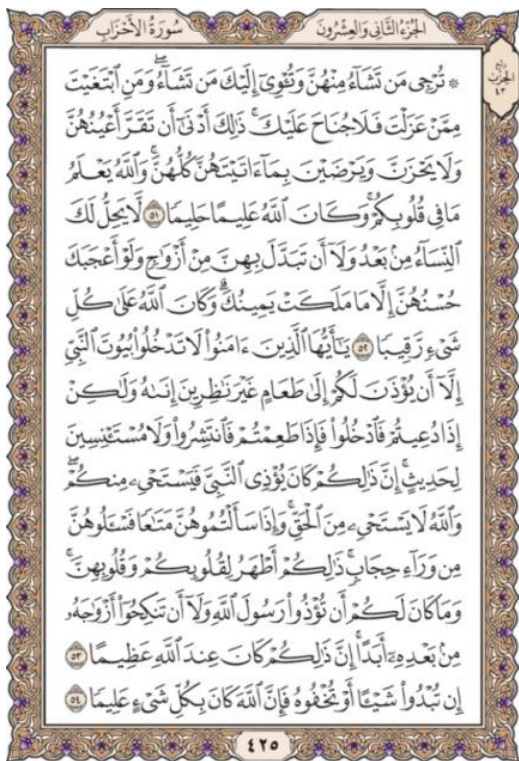 الجُزْءُ الثَّانِي وَالعِشْرُونَ
سُورَةُ الأَحْزَابِ
رُبُع
الحِزْبِ
٤٣
۞ تُرْجِى مَن تَشَآءُ مِنْهُنَّ وَتُـْٔوِىٓ إِلَيْكَ مَن تَشَآءُۖ وَمَنِ ٱبْتَغَيْتَ
مِمَّنْ عَزَلْتَ فَلَا جُنَاحَ عَلَيْكَۚ ذَٰلِكَ أَدْنَىٰٓ أَن تَقَرَّ أَعْيُنُهُنَّ
وَلَا يَحْزَنَّ وَيَرْضَيْنَ بِمَآ ءَاتَيْتَهُنَّ كُلُّهُنَّۚ وَٱللَّهُ يَعْلَمُ
مَا فِى قُلُوبِكُمْۚ وَكَانَ ٱللَّهُ عَلِيمًا حَلِيمًا ٥١ لَّا يَحِلُّ لَكَ
ٱلنِّسَآءُ مِنۢ بَعْدُ وَلَآ أَن تَبَدَّلَ بِهِنَّ مِنْ أَزْوَٰجٍ وَلَوْ أَعْجَبَكَ
حُسْنُهُنَّ إِلَّا مَا مَلَكَتْ يَمِينُكَۗ وَكَانَ ٱللَّهُ عَلَىٰ كُلِّ
شَىْءٍ رَّقِيبًا ٥٢ يَـٰٓأَيُّهَا ٱلَّذِينَ ءَامَنُوا۟ لَا تَدْخُلُوا۟ بُيُوتَ ٱلنَّبِىِّ
إِلَّآ أَن يُؤْذَنَ لَكُمْ إِلَىٰ طَعَامٍ غَيْرَ نَـٰظِرِينَ إِنَىٰهُ وَلَـٰكِنْ
إِذَا دُعِيتُمْ فَٱدْخُلُوا۟ فَإِذَا طَعِمْتُمْ فَٱنتَشِرُوا۟ وَلَا مُسْتَـْٔنِسِينَ
لِحَدِيثٍۚ إِنَّ ذَٰلِكُمْ كَانَ يُؤْذِى ٱلنَّبِىَّ فَيَسْتَحْىِۦ مِنكُمْۖ
وَٱللَّهُ لَا يَسْتَحْىِۦ مِنَ ٱلْحَقِّۚ وَإِذَا سَأَلْتُمُوهُنَّ مَتَـٰعًا فَسْـَٔلُوهُنَّ
مِن وَرَآءِ حِجَابٍۚ ذَٰلِكُمْ أَطْهَرُ لِقُلُوبِكُمْ وَقُلُوبِهِنَّۚ
وَمَا كَانَ لَكُمْ أَن تُؤْذُوا۟ رَسُولَ ٱللَّهِ وَلَآ أَن تَنكِحُوٓا۟ أَزْوَٰجَهُۥ
مِنۢ بَعْدِهِۦٓ أَبَدًاۚ إِنَّ ذَٰلِكُمْ كَانَ عِندَ ٱللَّهِ عَظِيمًا ٥٣
إِن تُبْدُوا۟ شَيْـًٔا أَوْ تُخْفُوهُ فَإِنَّ ٱللَّهَ كَانَ بِكُلِّ شَىْءٍ عَلِيمًا ٥٤
٤٢٥